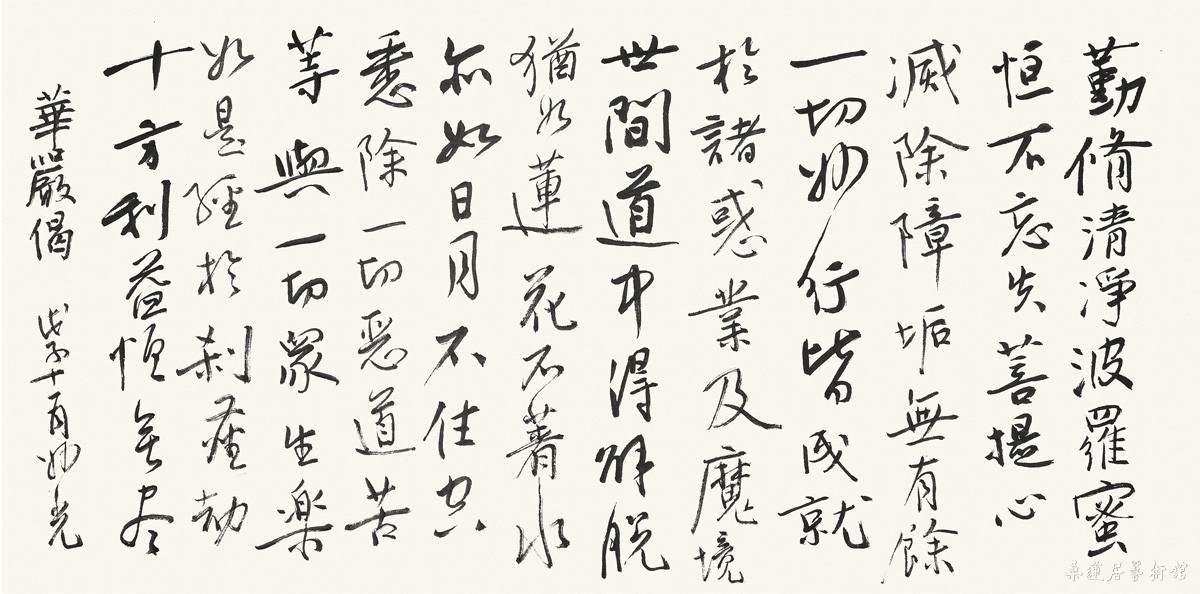 勤脩清淨波羅蜜
恒不忘失菩提心
滅除障垢無有餘
一切妙行皆成就
於諸惑業及魔境
世間道中得解脫
猶如蓮花不著水
亦如日月不住空
悉除一切惡道苦
等與一切眾生樂
如是經於剎塵劫
十方利益恒无尽
華嚴偈 戊子十一月妙光
蓮居藝術館